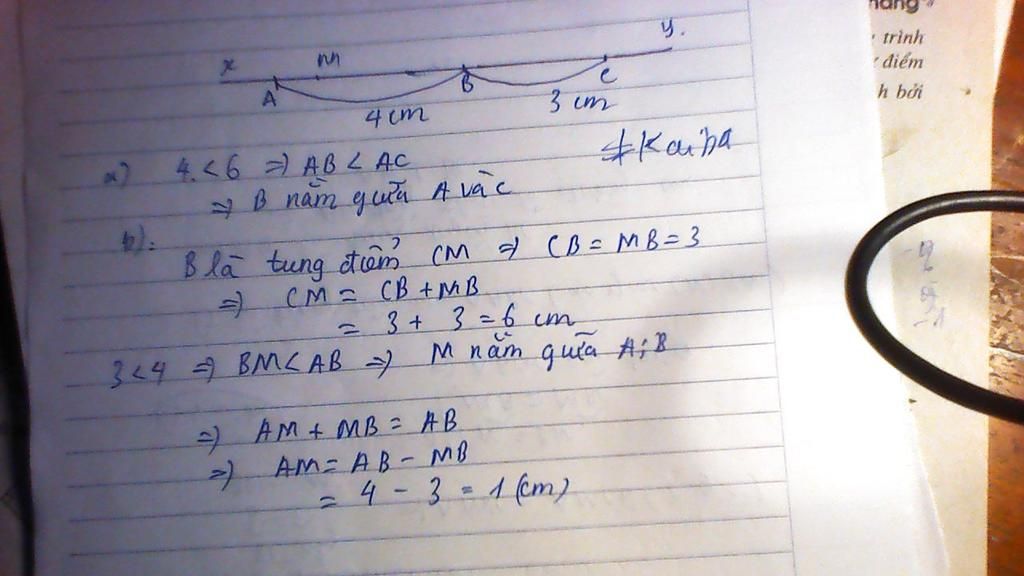 x A M B C y.
4 cm 3 cm
a) 4 < 6 => AB < AC
#Kaiba
=> B nằm giữa A và C
b):
B là tung điểm CM => CB = MB = 3
=> CM = CB + MB
= 3 + 3 = 6 cm
3 < 4 => BM < AB => M nằm giữa A; B
=> AM + MB = AB
=> AM = AB - MB
= 4 - 3 = 1 (cm)
trình
điểm
h bởi